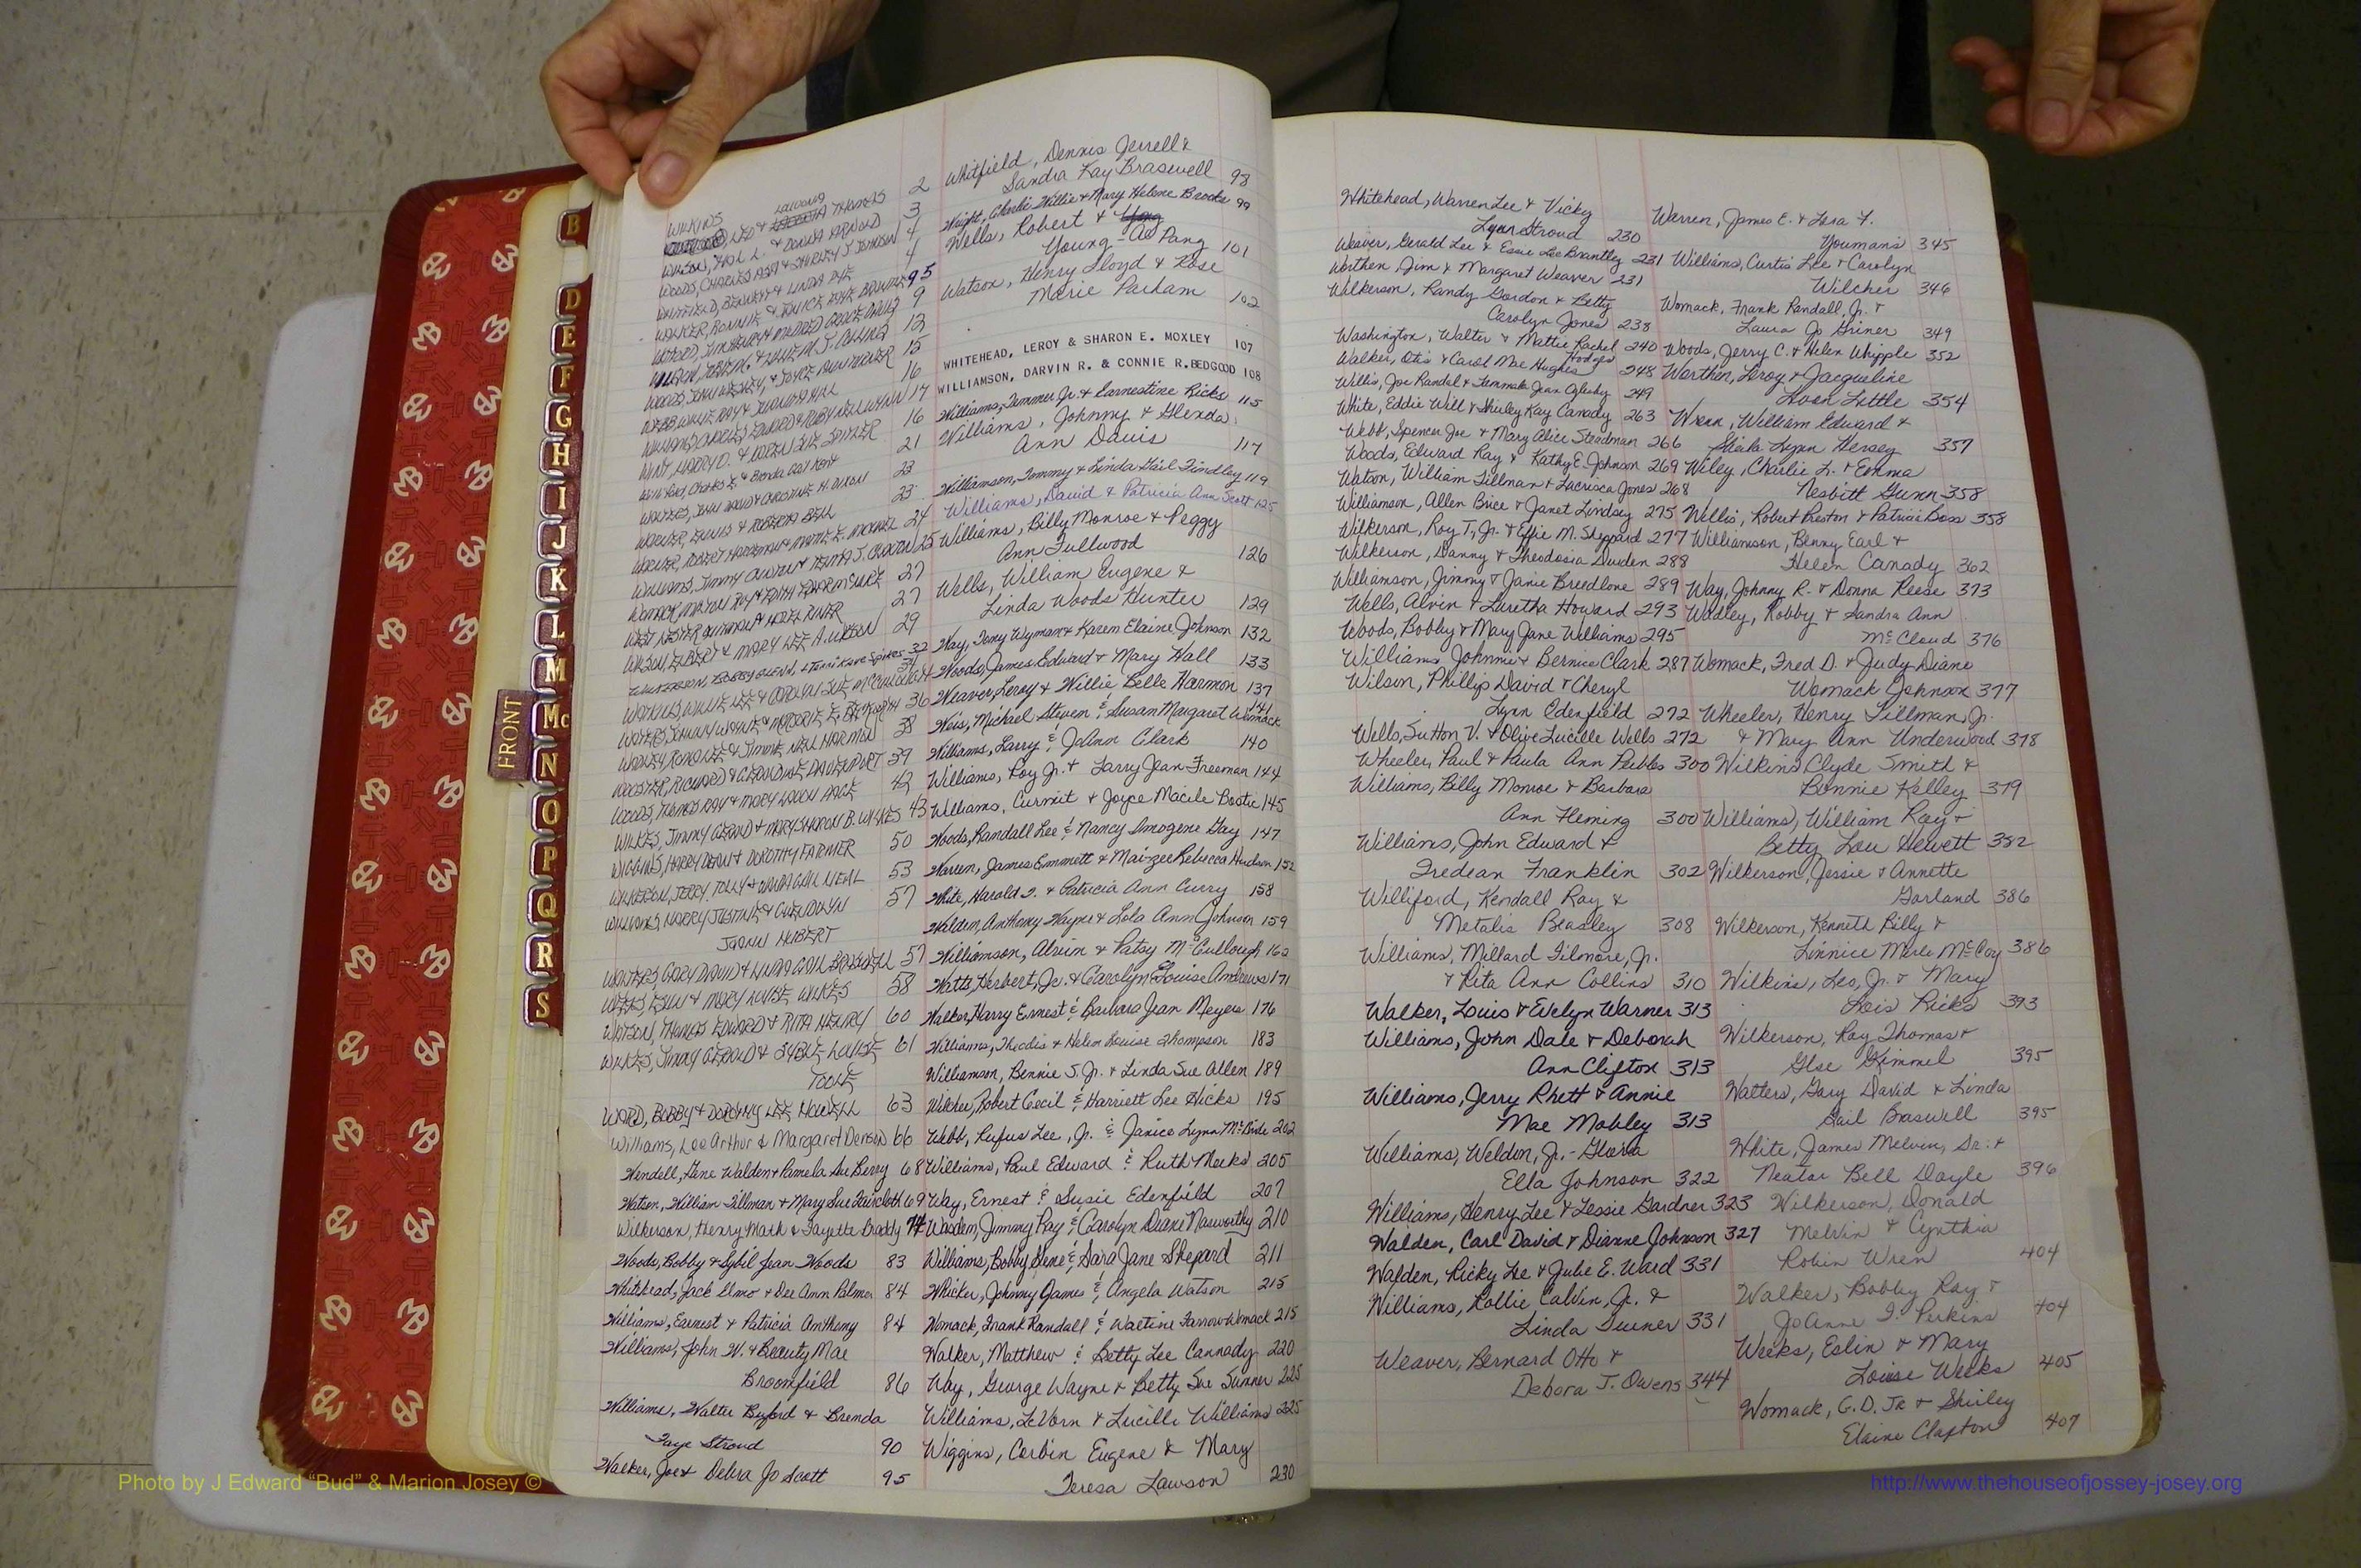 WILKINS LAWANA
NED & THOMAS 2
WILSON, HAL L. & DONNA ARNOLD 3
WOODS, CHARLES ASA & SHIRLEY J. JOHNSON 4
WHITFIELD, BENNETT & LINDA DYE 4
WALKER, RONNIE & JANICE FAYE 95
9
12
WOODS, JOHN WESLEY, & JOYCE ANN 15
WEBB, WILLIE RAY & JUANITA HALL 16
WILLIAMS, CHARLES EDWARD & RUBY NELL WYNN 17
WINT, HARRY D. & 16
Williford, Charles E. & Brenda Gail Kent 21
WOLFES, JOHN DAVID & CHRISTINE H. DIXON 23
WARNER, ENNIS & ROBERTA BELL 23
24
WILLIAMS, JIMMY 25
WOMACK, 27
WEST, 27
WILSON, ELBERT & MARY LEE A. WILSON 29
WILKERSON, BOBBY GLENN, & Terri Kaye Spikes 32
34
WATERS, JOHNNY WAYNE & MARJORIE 36
WADLEY, RONDLE & JIMMIE NELL HARMON 38
WOOSTER, RICHARD & GERALDINE DAVENPORT 39
WOODS, THOMAS RAY & MARY 42
WILKES, JIMMY GERALD & MARY SHARON B. WILKES 43
WIGGINS, HARRY DEAN & DOROTHY FARMER 50
WILKERSON, JERRY TOLLY & WANDA GAIL NEAL 53
WILLIAMS, HARRY JUSTINE & GWENDOLYN 57
JOANN HUBERT
WATERS, GARY DAVID & LINDA GAIL BRASWELL 57
WEEKS, ESLIN & MARY LOUISE WILKES 58
WATSON, THOMAS EDWARD & RITA HENRY 60
WILKES, JIMMY GERALD & SYBLE LOUISE 61
TOOLE
WARD, BOBBY & DOROTHY LEE HOWELL 63
Williams, Lee Arthur & Margaret Denson 66
Wendell, Gene Walden & Pamela Sue Berry 68
Watson, William Tillman & Mary Sue Faircloth 69
Wilkerson, Henry Mark & Fayette Braddy 74
Woods, Bobby & Sybil Jean Woods 83
Whitehead, Jack Elmo & Dee Ann Palmer 84
Williams, Earnest & Patricia Anthony 84
Williams, John W. & Beauty Mae
Broomfield 86
Williams, Walter Buford & Brenda
Faye Stroud 90
Walker, Joe & Debra Jo Scott 95
Whitfield, Dennis Jerrell &
Sandra Kay Braswell 98
Wright, Charlie Willie & Mary Helene Brooks 99
Wells, Robert & Yong
Young-Ae Pang 101
Watson, Henry Lloyd & Rose
Marie Parham 102
WHITEHEAD, LEROY & SHARON E. MOXLEY 107
WILLIAMSON, DARVIN R. & CONNIE R. BEDGOOD 108
Williams, Jimmer Jr. & Earnestine Ricks 115
Williams, Johnny & Glenda
Ann Davis 117
Williamson, Tommy & Linda Gail Findley 119
Williams, David & Patricia Ann Scott 125
Williams, Billy Monroe & Peggy
Ann Fullwood 126
Wells, William Eugene &
Linda Woods Hunter 129
Way, Tony Wyman & Karen Elaine Johnson 132
Woods, James Edward & Mary Hall 133
Weaver, Leroy & Willie Belle Harmon 137
Weis, Michael Steven & Susan Margaret Womack 141
Williams, Larry & JoAnn Clark 140
Williams, Roy Jr. & Larry Jean Freeman 144
Williams, Curmit & Joyce Macile Bostic 145
Woods, Randall Lee & Nancy Imogene Gay 147
Warren, James Emmett & Maizee Rebecca Hudson 152
White, Harold I. & Patricia Ann Curry 158
Walden, Anthony Wayne & Lola Ann Johnson 159
Williamson, Alvin & Patsy McCullough 162
Watts, Herbert, Jr. & Carolyn Louise Andrews 171
Walker, Harry Ernest & Barbara Jean Meyers 176
Williams, Theodis & Helen Louise Thompson 183
Williamson, Bennie S. Jr. & Linda Sue Allen 189
Wilcher, Robert Cecil & Harriett Lee Hicks 195
Webb, Rufus Lee, Jr. & Janice Lynn McBride 202
Williams, Paul Edward & Ruth Meeks 205
Way, Ernest & Susie Edenfield 207
Wasden, Jimmy Ray & Carolyn Diane Nasworthy 210
Williams, Bobby Gene & Sara Jane Shepard 211
Whicker, Johnny James & Angela Watson 215
Womack, Frank Randall & Waltine Farrow Womack 215
Walker, Matthew & Betty Lee Cannady 220
Way, George Wayne & Betty Sue Sumner 225
Williams, LeVorn & Lucille Williams 225
Wiggins, Corbin Eugene & Mary
Teresa Lawson 230
Whitehead, Warren Lee & Vicky
Lynn Stroud 230
Weaver, Gerald Lee & Essie Lee Brantley 231
Worthen, Jim & Margaret Weaver 231
Wilkerson, Randy Gordon & Betty
Carolyn Jones 238
Washington, Walter & Mattie Rachel 240
Hodges
Walker, Otis & Carol Mae Hughes 248
Willis, Joe Randal & Jemmale Jean Oglesby 249
White, Eddie Will & Shirley Kay Canady 263
Webb, Spencer Joe & Mary Alice Steadman 266
Woods, Edward Ray & Kathy E. Johnson 269
Watson, William Tillman & Lacrisca Jones 268
Williamson, Allen Brice & Janet Lindsey 275
Wilkerson, Roy T., Jr. & Effie M. Sheppard 277
Wilkerson, Danny & Theodosia Durden 288
Williamson, Jimmy & Janie Breedlone 289
Wells, Alvin & Luretha Howard 293
Woods, Bobby & Mary Jane Williams 295
Williams Johnnie & Bernice Clark 287
Wilson, Phillip David & Cheryl
Lynn Edenfield 272
Wells, Sutton V. & Olive Lucille Wells 272
Wheeler, Paul & Paula Ann Peebles 300
Williams, Billy Monroe & Barbara
Ann Fleming 300
Williams, John Edward &
Fredean Franklin 302
Williford, Kendall Ray &
Metalis Beasley 308
Williams, Millard Filmore, Jr.
& Rita Ann Collins 310
Walker, Louis & Evelyn Warner 313
Williams, John Dale & Deborah
Ann Clifton 313
Williams, Jerry Rhett & Annie
Mae Mobley 313
Williams, Weldon, Jr. - Gloria
Ella Johnson 322
Williams, Henry Lee & Lessie Gardner 323
Walden, Carl David & Dianne Johnson 327
Walden, Ricky Lee & Julie E. Ward 331
Williams, Rollie Calvin, Jr. &
Linda Turner 331
Weaver, Bernard Otto &
Debora J. Owens 344
Warren, James E. & Lera F.
Youmans 345
Williams, Curtis Lee & Carolyn
Wilcher 346
Womack, Frank Randall, Jr. &
Laura Jo Griner 349
Woods, Jerry C. & Helen Whipple 352
Worthen, Leroy & Jacqueline
Loan Little 354
Wrenn, William Edward &
Sheila Lynn Hersey 357
Wiley, Charlie L. & Emma
Nesbitt Gunn 358
Willis, Robert Preston & Patricia Boss 358
Williamson, Benny Earl &
Helen Canady 362
Way, Johnny R. & Donna Reese 373
Wadley, Robby & Sandra Ann
McCloud 376
Womack, Fred D. & Judy Diane
Womack Johnson 377
Wheeler, Henry Tillman, Jr.
& Mary Ann Underwood 378
Wilkins, Clyde Smith &
Bonnie Kelley 379
Williams, William Ray &
Betty Lou Hewett 382
Wilkerson, Jessie & Annette
Garland 386
Wilkerson, Kenneth Billy &
Linnice Merle McCoy 386
Wilkins, Leo, Jr. & Mary
Lois Ricks 393
Wilkerson, Ray Thomas &
Ilse Kimmel 395
Watters, Gary David & Linda
Gail Braswell 395
White, James Melvin, Sr. &
Neatar Bell Dayle 396
Wilkerson, Donald
Melvin & Cynthia
Robin Wren 404
Walker, Bobby Ray &
JoAnne I. Perkins 404
Weeks, Eslin & Mary
Louise Weeks 405
Womack, G.D. Jr & Shirley
Elaine Claxton 407
B
D
E
F
G
H
I
J
K
L
M
Mc
N
O
P
Q
R
S
FRONT
Photo by J Edward “Bud” & Marion Josey ©
http://www.thehouseofjossey-josey.org